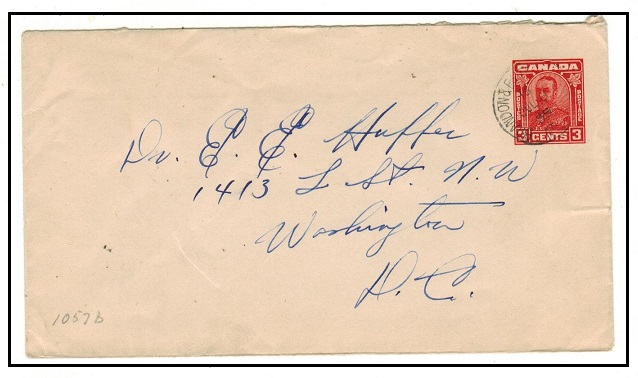 CANADA
POSTAGE POSTAGE
3 CENTS 3
Dr. E. E. Huffer
1413 L St. N.W
Washington
D.C.
1057b